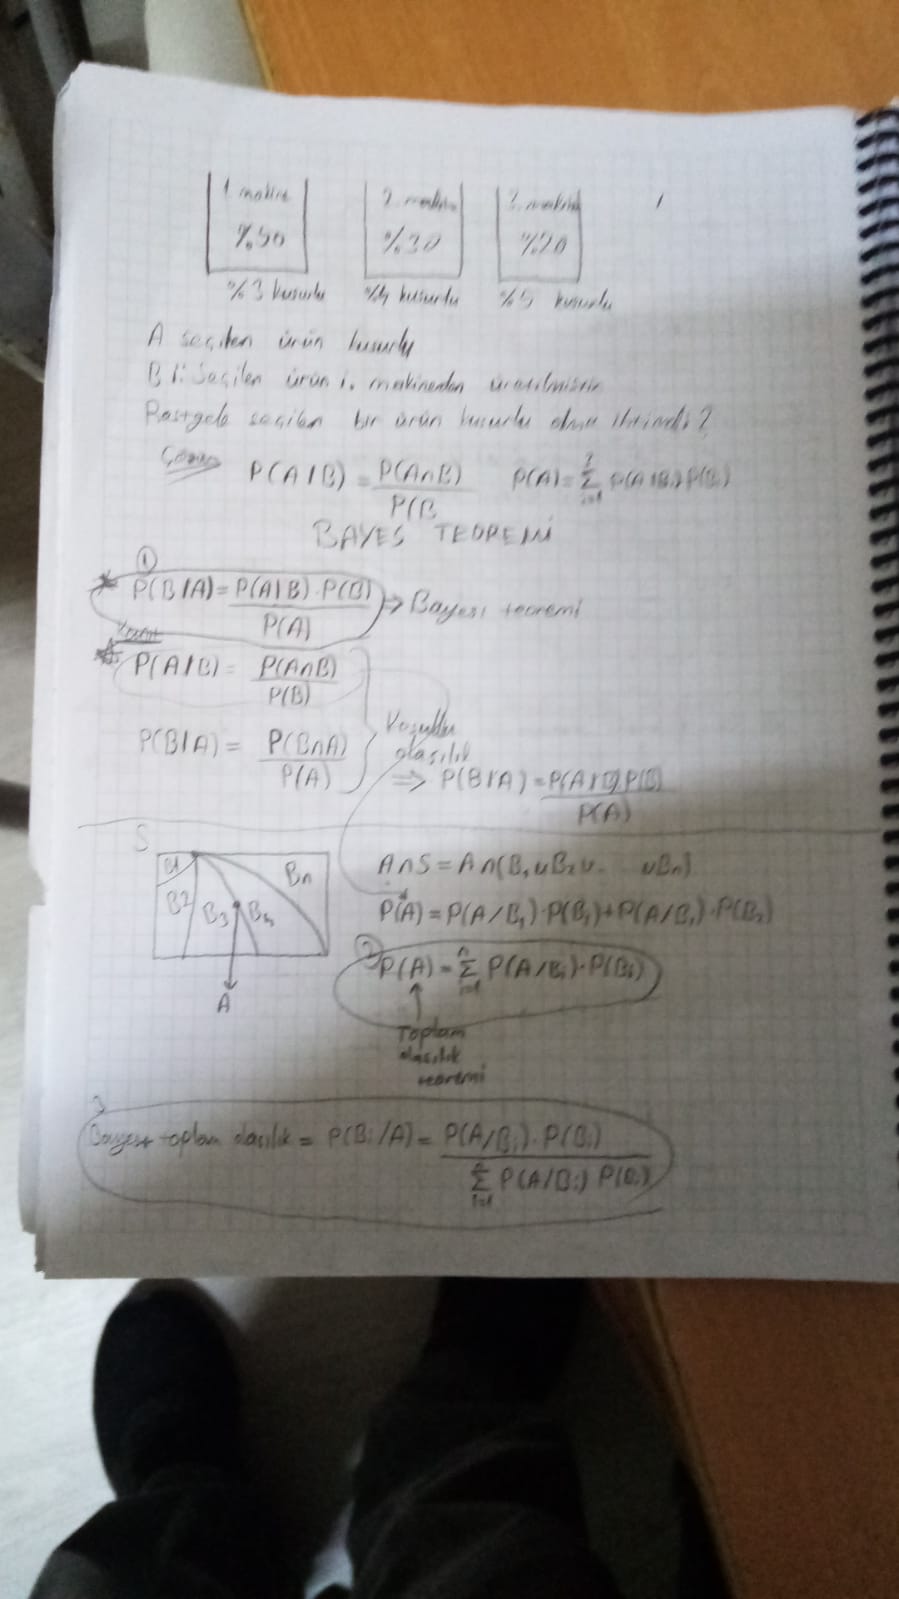 1. makine 2. makine 3. makine
%50 %30 %20
%3 kusurlu %4 kusurlu %5 kusurlu
A seçilen ürün kusurlu
Bi: Seçilen ürün i. makineden üretilmiştir
Rastgele seçilen bir ürün kusurlu olma ihtimali?
Çözüm P(A/B) = P(A∩B) / P(B P(A) = 3 Σ i=1 P(A/Bi) P(Bi)
BAYES TEOREMİ
① P(B/A) = P(A|B)·P(B) / P(A) → Bayes teoremi
P(A/B) = P(A∩B) / P(B)
P(B/A) = P(B∩A) / P(A)
Koşullu olasılık
⇒ P(B/A) = P(A/B)P(B) / P(A)
S
B1 B2 B3 B4 Bn
A
A∩S = A∩(B1∪B2∪.. ∪Bn)
P(A) = P(A/B1)·P(B1)+P(A/B1)·P(B2)
② P(A) = n Σ i=1 P(A/Bi)·P(Bi)
Toplam
olasılık
teoremi
3
Bayes+ toplam olasılık = P(Bi/A) = P(A/Bi)·P(Bi) / n Σ i=1 P(A/Bi) P(Bi)